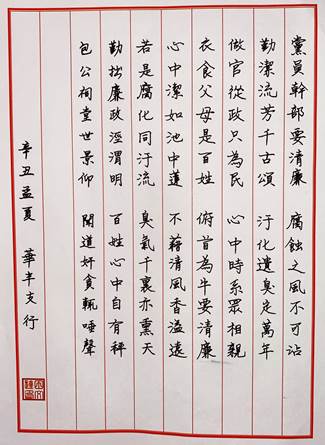 黨員幹部要清廉 腐蝕之風不可沾
勤潔流芳千古頌 汙化遺臭定萬年
做官從政只為民 心中時系眾相親
衣食父母是百姓 俯首為牛要清廉
心中潔如池中蓮 不藉清風香溢遠
若是腐化同汙流 臭氣千裏亦熏天
勤拙廉政涇渭明 百姓心中自有秤
包公祠堂世景仰 聞道奸貪輒唾聲
辛丑孟夏 華半支行